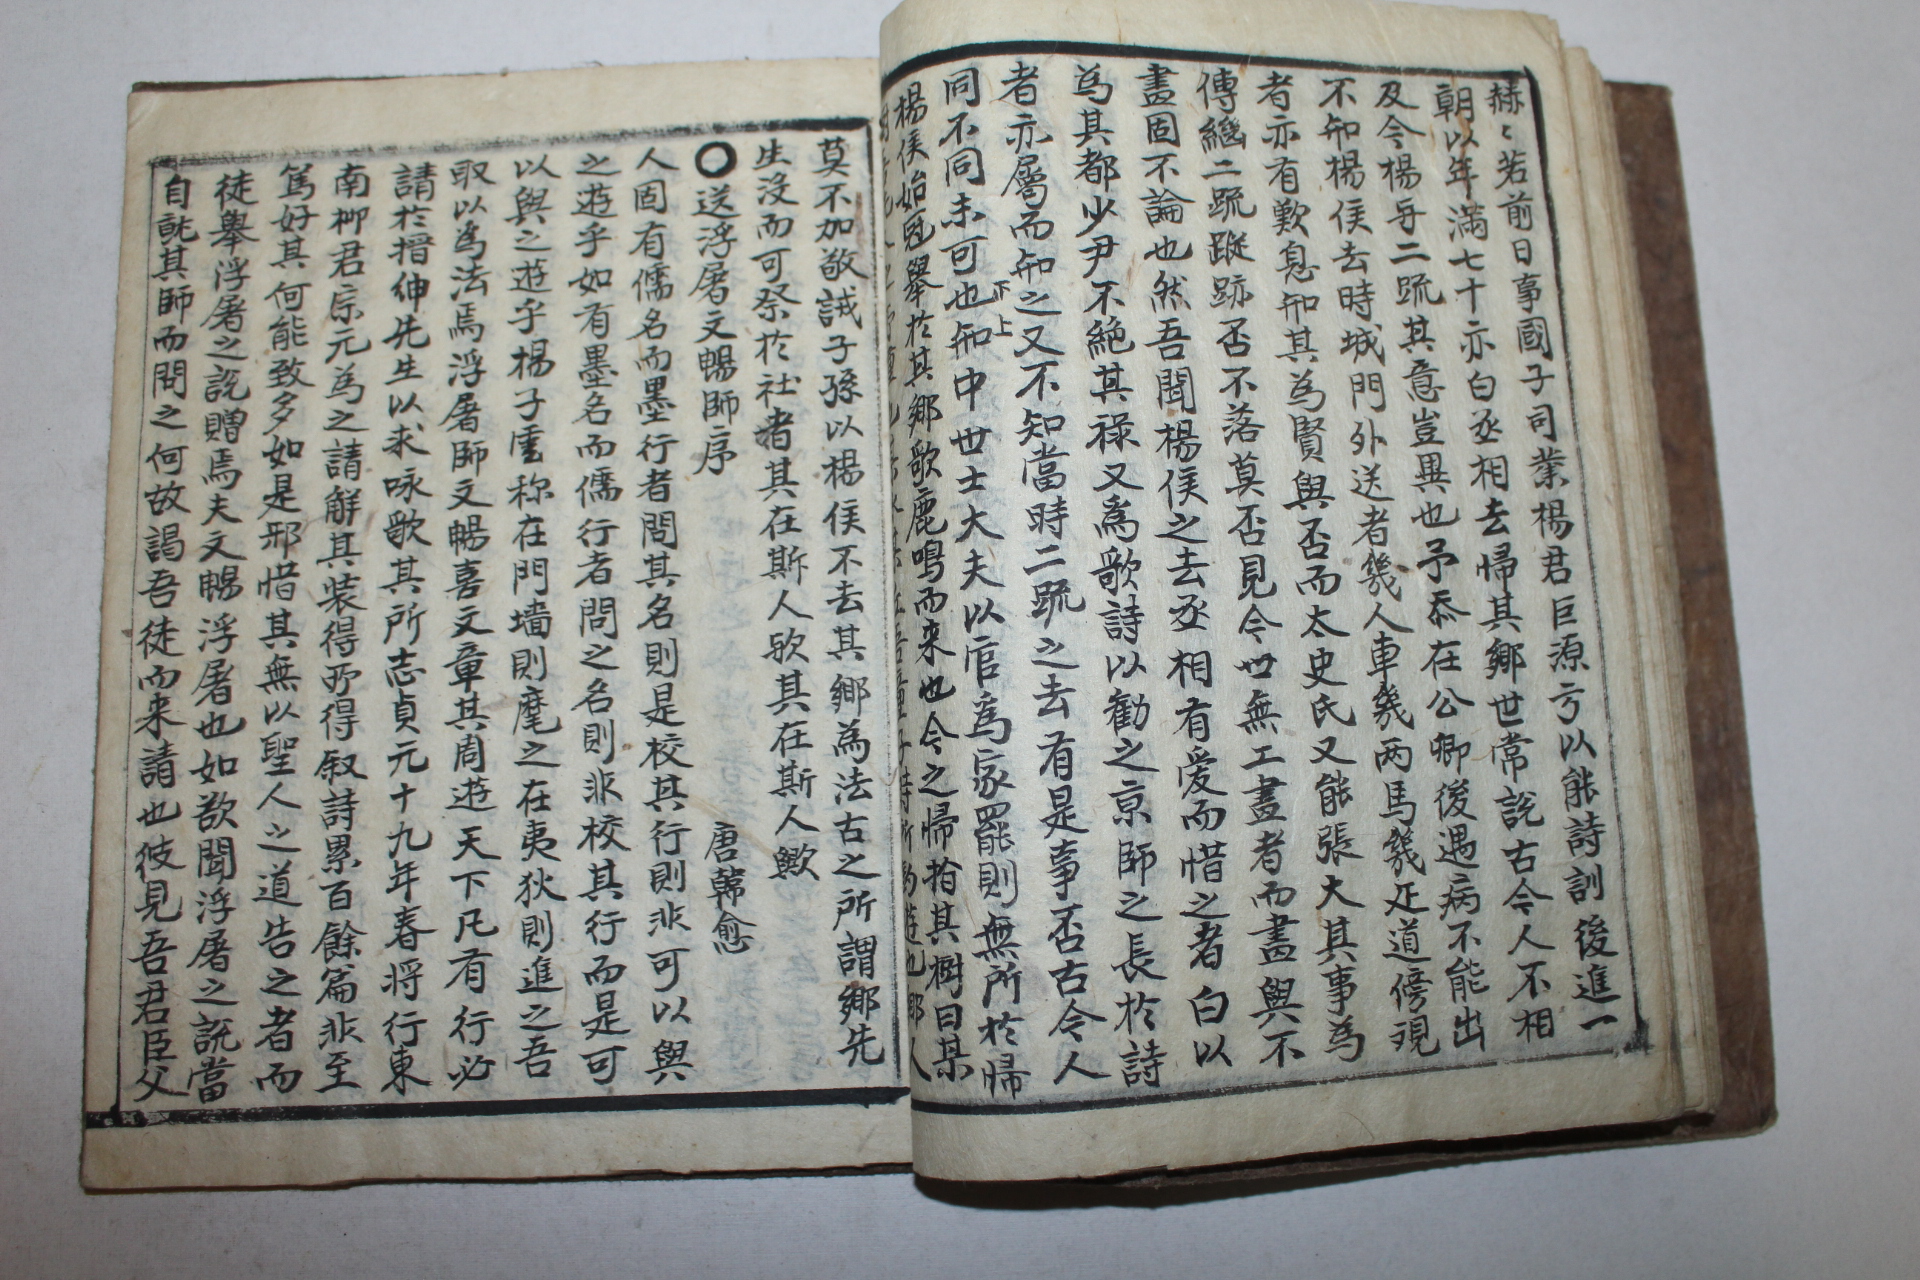 赫〻若前日事國子司業楊君巨源方以能詩訓後進一
朝以年滿七十亦白丞相去帰其鄉世常說古今人不相
及今楊与二疏其意豈異也予忝在公卿後遇病不能出
不知楊侯去時城門外送者幾人車幾両馬幾疋道傍覌
者亦有歎息知其為賢與否而太史氏又能張大其事為
傳継二疏蹤跡否不落莫否見今世無工畫者而畫與不
畫固不論也然吾聞楊侯之去丞相有爱而惜之者白以
為其都少尹不絶其祿又為歌詩以勸之京師之長於詩
者亦屬而和之又不知當時二疏之去有是事否古今人
同不同未可也知中世士大夫以官為家罷則無所於帰
下上
楊侯始冠舉於其鄉歌鹿鳴而来也今之帰指其樹曰某
莫不加敬誡子孫以楊侯不去其鄉為法古之所謂鄉先
生没而可祭於社者其在斯人欤其在斯人歟
〇送浮屠文暢師序 唐韓愈
人固有儒名而墨行者問其名則是校其行則非可以與
之遊乎如有墨名而儒行者問之名則非校其行而是可
以與之遊乎楊子雲称在門墻則麾之在夷狄則進之吾
取以為法焉浮屠師文暢喜文章其周遊天下凡有行必
請於搢紳先生以求咏歌其所志貞元十九年春将行東
南柳君宗元為之請解其装得所得叙詩累百餘篇非至
篤好其何能致多如是邪惜其無以聖人之道告之者而
徒舉浮屠之說贈焉夫文暢浮屠也如欲聞浮屠之說當
自就其師而問之何故謁吾徒而来請也彼見吾君臣父